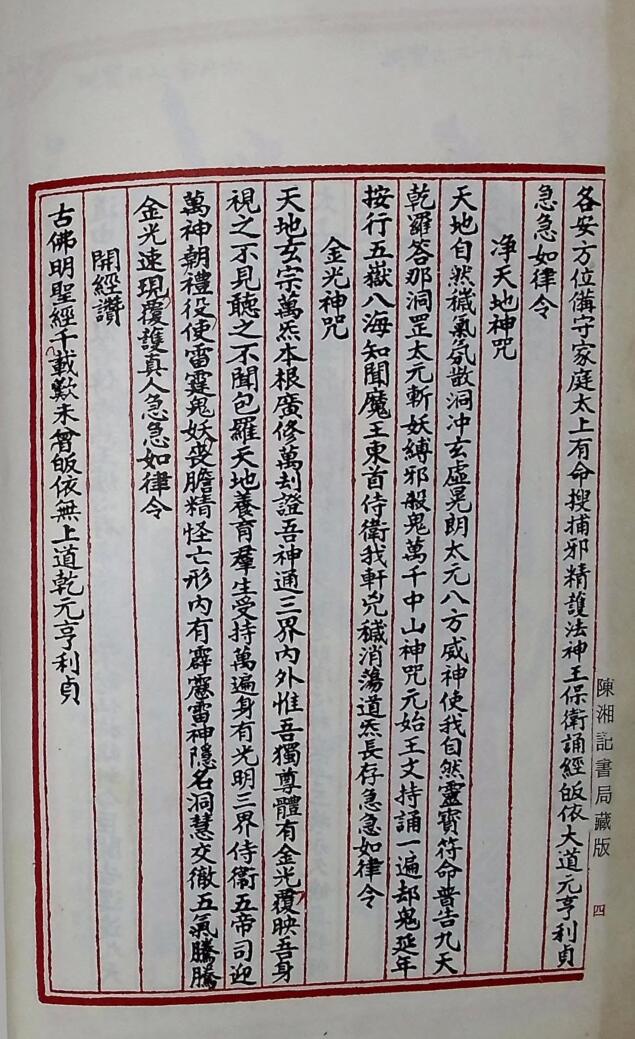 各安方位備守家庭太上有命搜捕邪精護法神王保衛誦經皈依大道元亨利貞
急急如律令
净天地神咒
天地自然穢氣氛散洞冲玄虛晃朗太元八方威神使我自然靈寶符命普告九天
乾羅答那洞罡太元斬妖縛邪殺鬼萬千中山神咒元始王文持誦一遍却鬼延年
按行五嶽八海知聞魔王束首侍衛我軒兇穢消蕩道炁長存急急如律令
金光神咒
天地玄宗萬炁本根廣修萬刦證吾神通三界內外惟吾獨尊體有金光覆映吾身
視之不見聽之不聞包羅天地養育羣生受持萬遍身有光明三界侍衛五帝司迎
萬神朝禮役使雷霆鬼妖喪膽精怪亡形內有霹靂雷神隱名洞慧交徹五氣騰騰
金光速現覆護真人急急如律令
開經讚
古佛明聖經千載歎未曾皈依無上道乾元亨利貞
陳湘記書局藏版
四